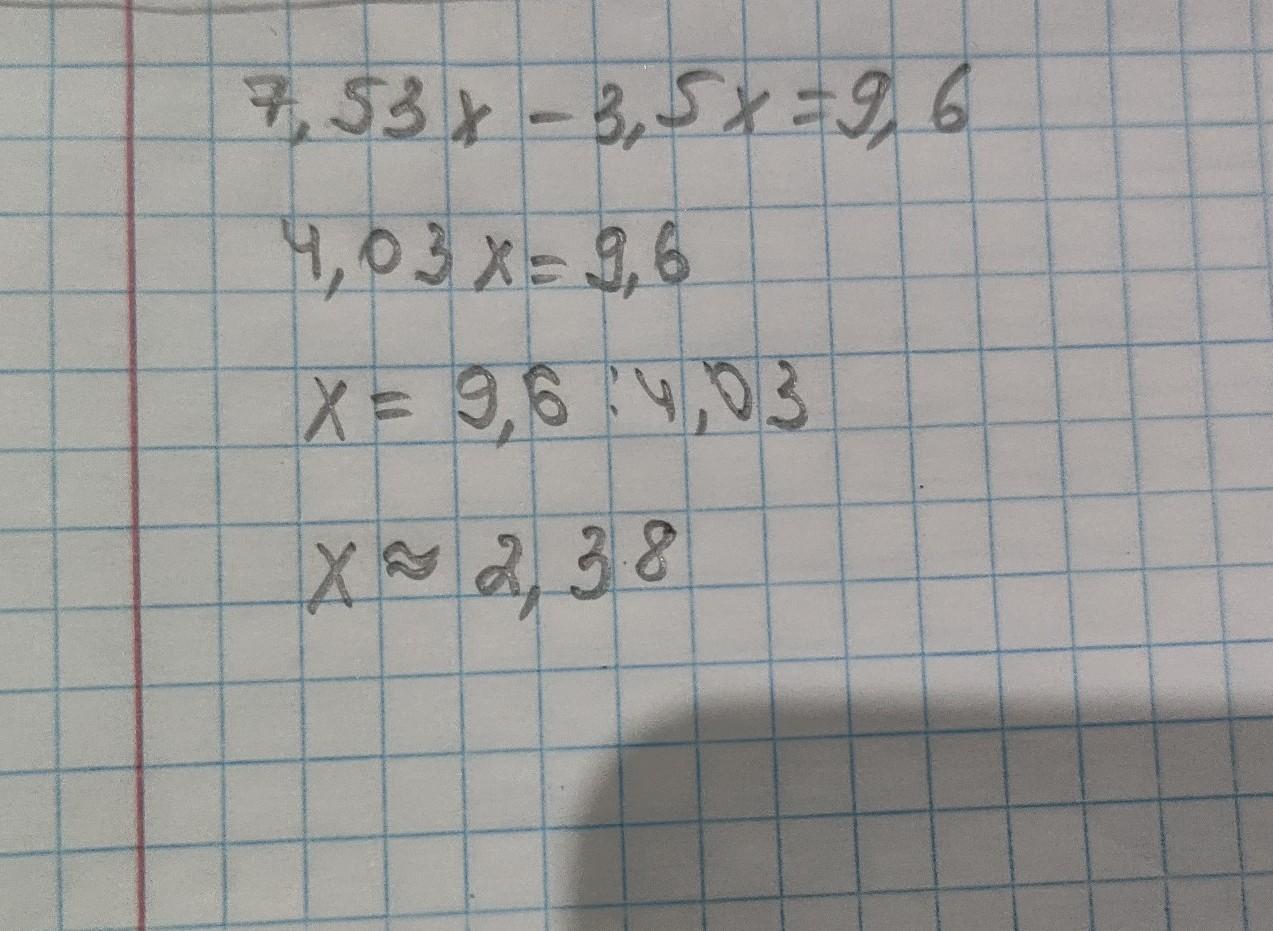 7,53x - 3,5x = 9,6
4,03x = 9,6
x = 9,6 : 4,03
x ≈ 2,38